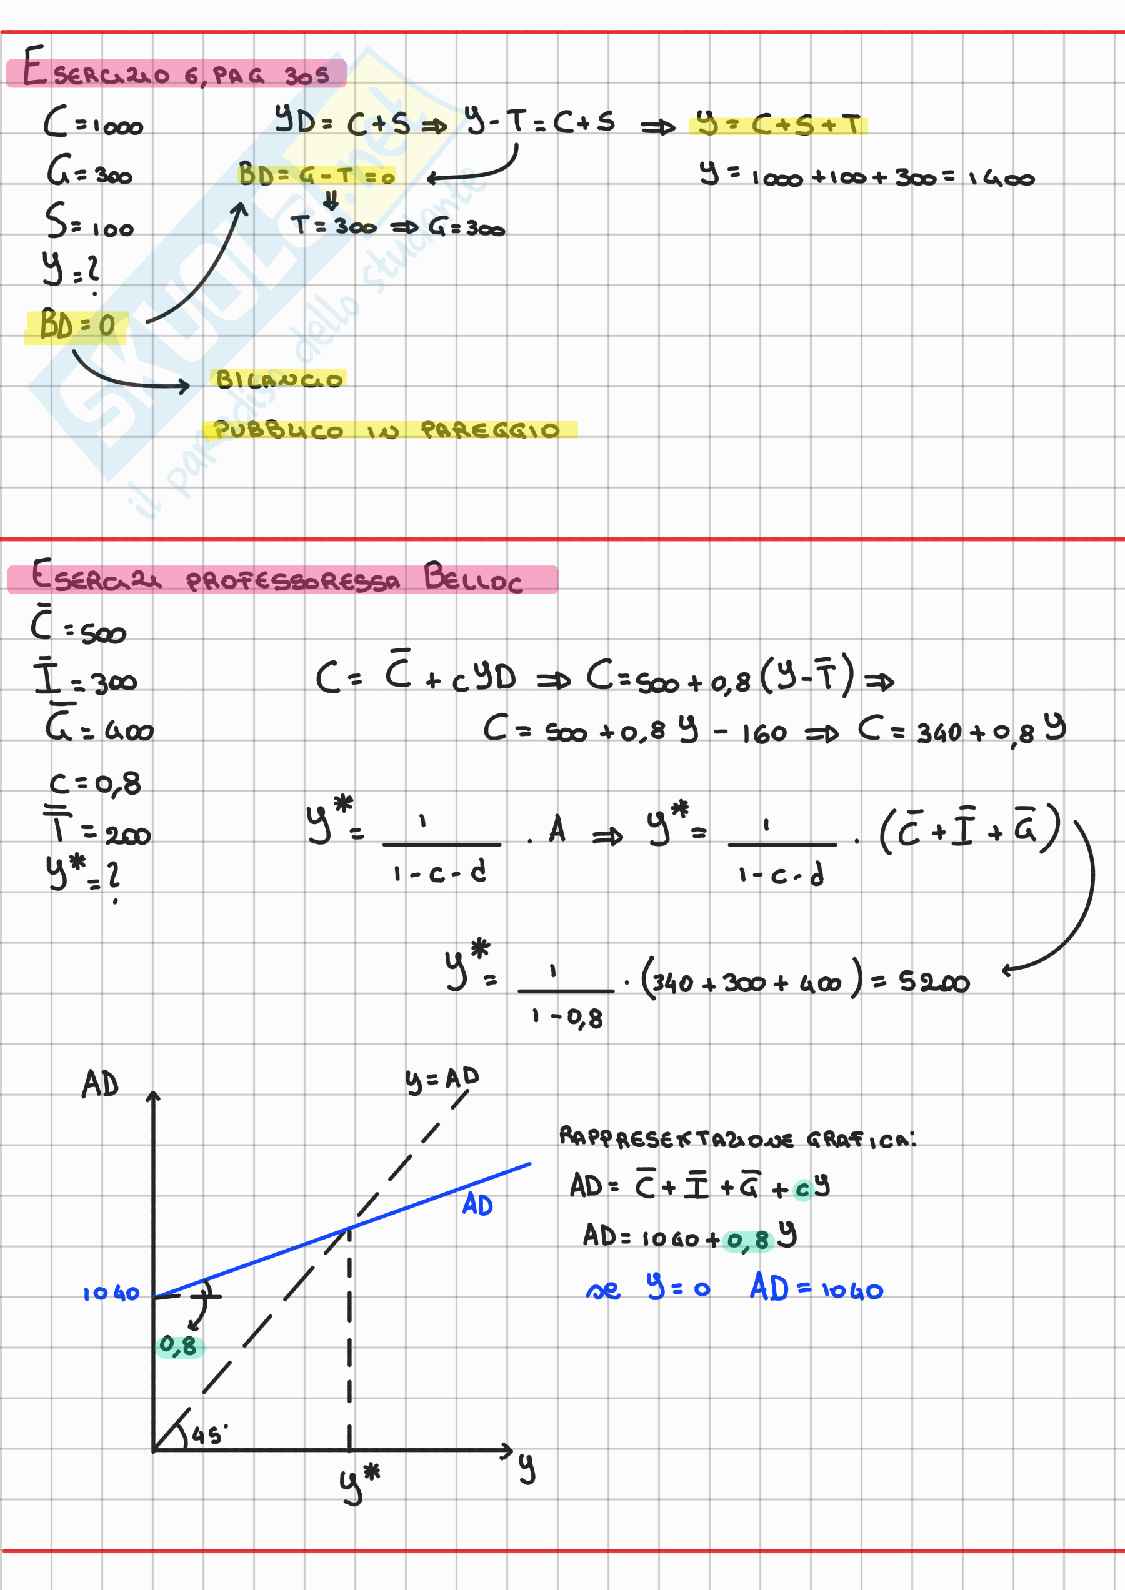 ESERCIZIO 6, PAG 305
C = 1000
G = 300
S = 100
Y = ?
BD = 0
YD = C + S ⇒ Y - T = C + S ⇒ Y = C + S + T
BD = G - T = 0
Y = 1000 + 100 + 300 = 1400
⇓
T = 300 ⇒ G = 300
BILANCIO
PUBBLICO IN PAREGGIO
SKUOLA.net
il paradiso dello studente
ESERCIZI PROFESSORESSA BELLOC
C̄ = 500
Ī = 300
Ḡ = 400
c = 0,8
T̄ = 200
Y* = ?
C = C̄ + cYD ⇒ C = 500 + 0,8 (Y - T̄) ⇒
C = 500 + 0,8 Y - 160 ⇒ C = 340 + 0,8 Y
Y* = 1/(1 - c - d) · A ⇒ Y* = 1/(1 - c - d) · (C̄ + Ī + Ḡ)
Y* = 1/(1 - 0,8) · (340 + 300 + 400) = 5200
AD
Y = AD
AD
1040
0,8
45°
Y*
Y
RAPPRESENTAZIONE GRAFICA:
AD = C̄ + Ī + Ḡ + cY
AD = 1040 + 0,8 Y
se Y = 0 AD = 1040